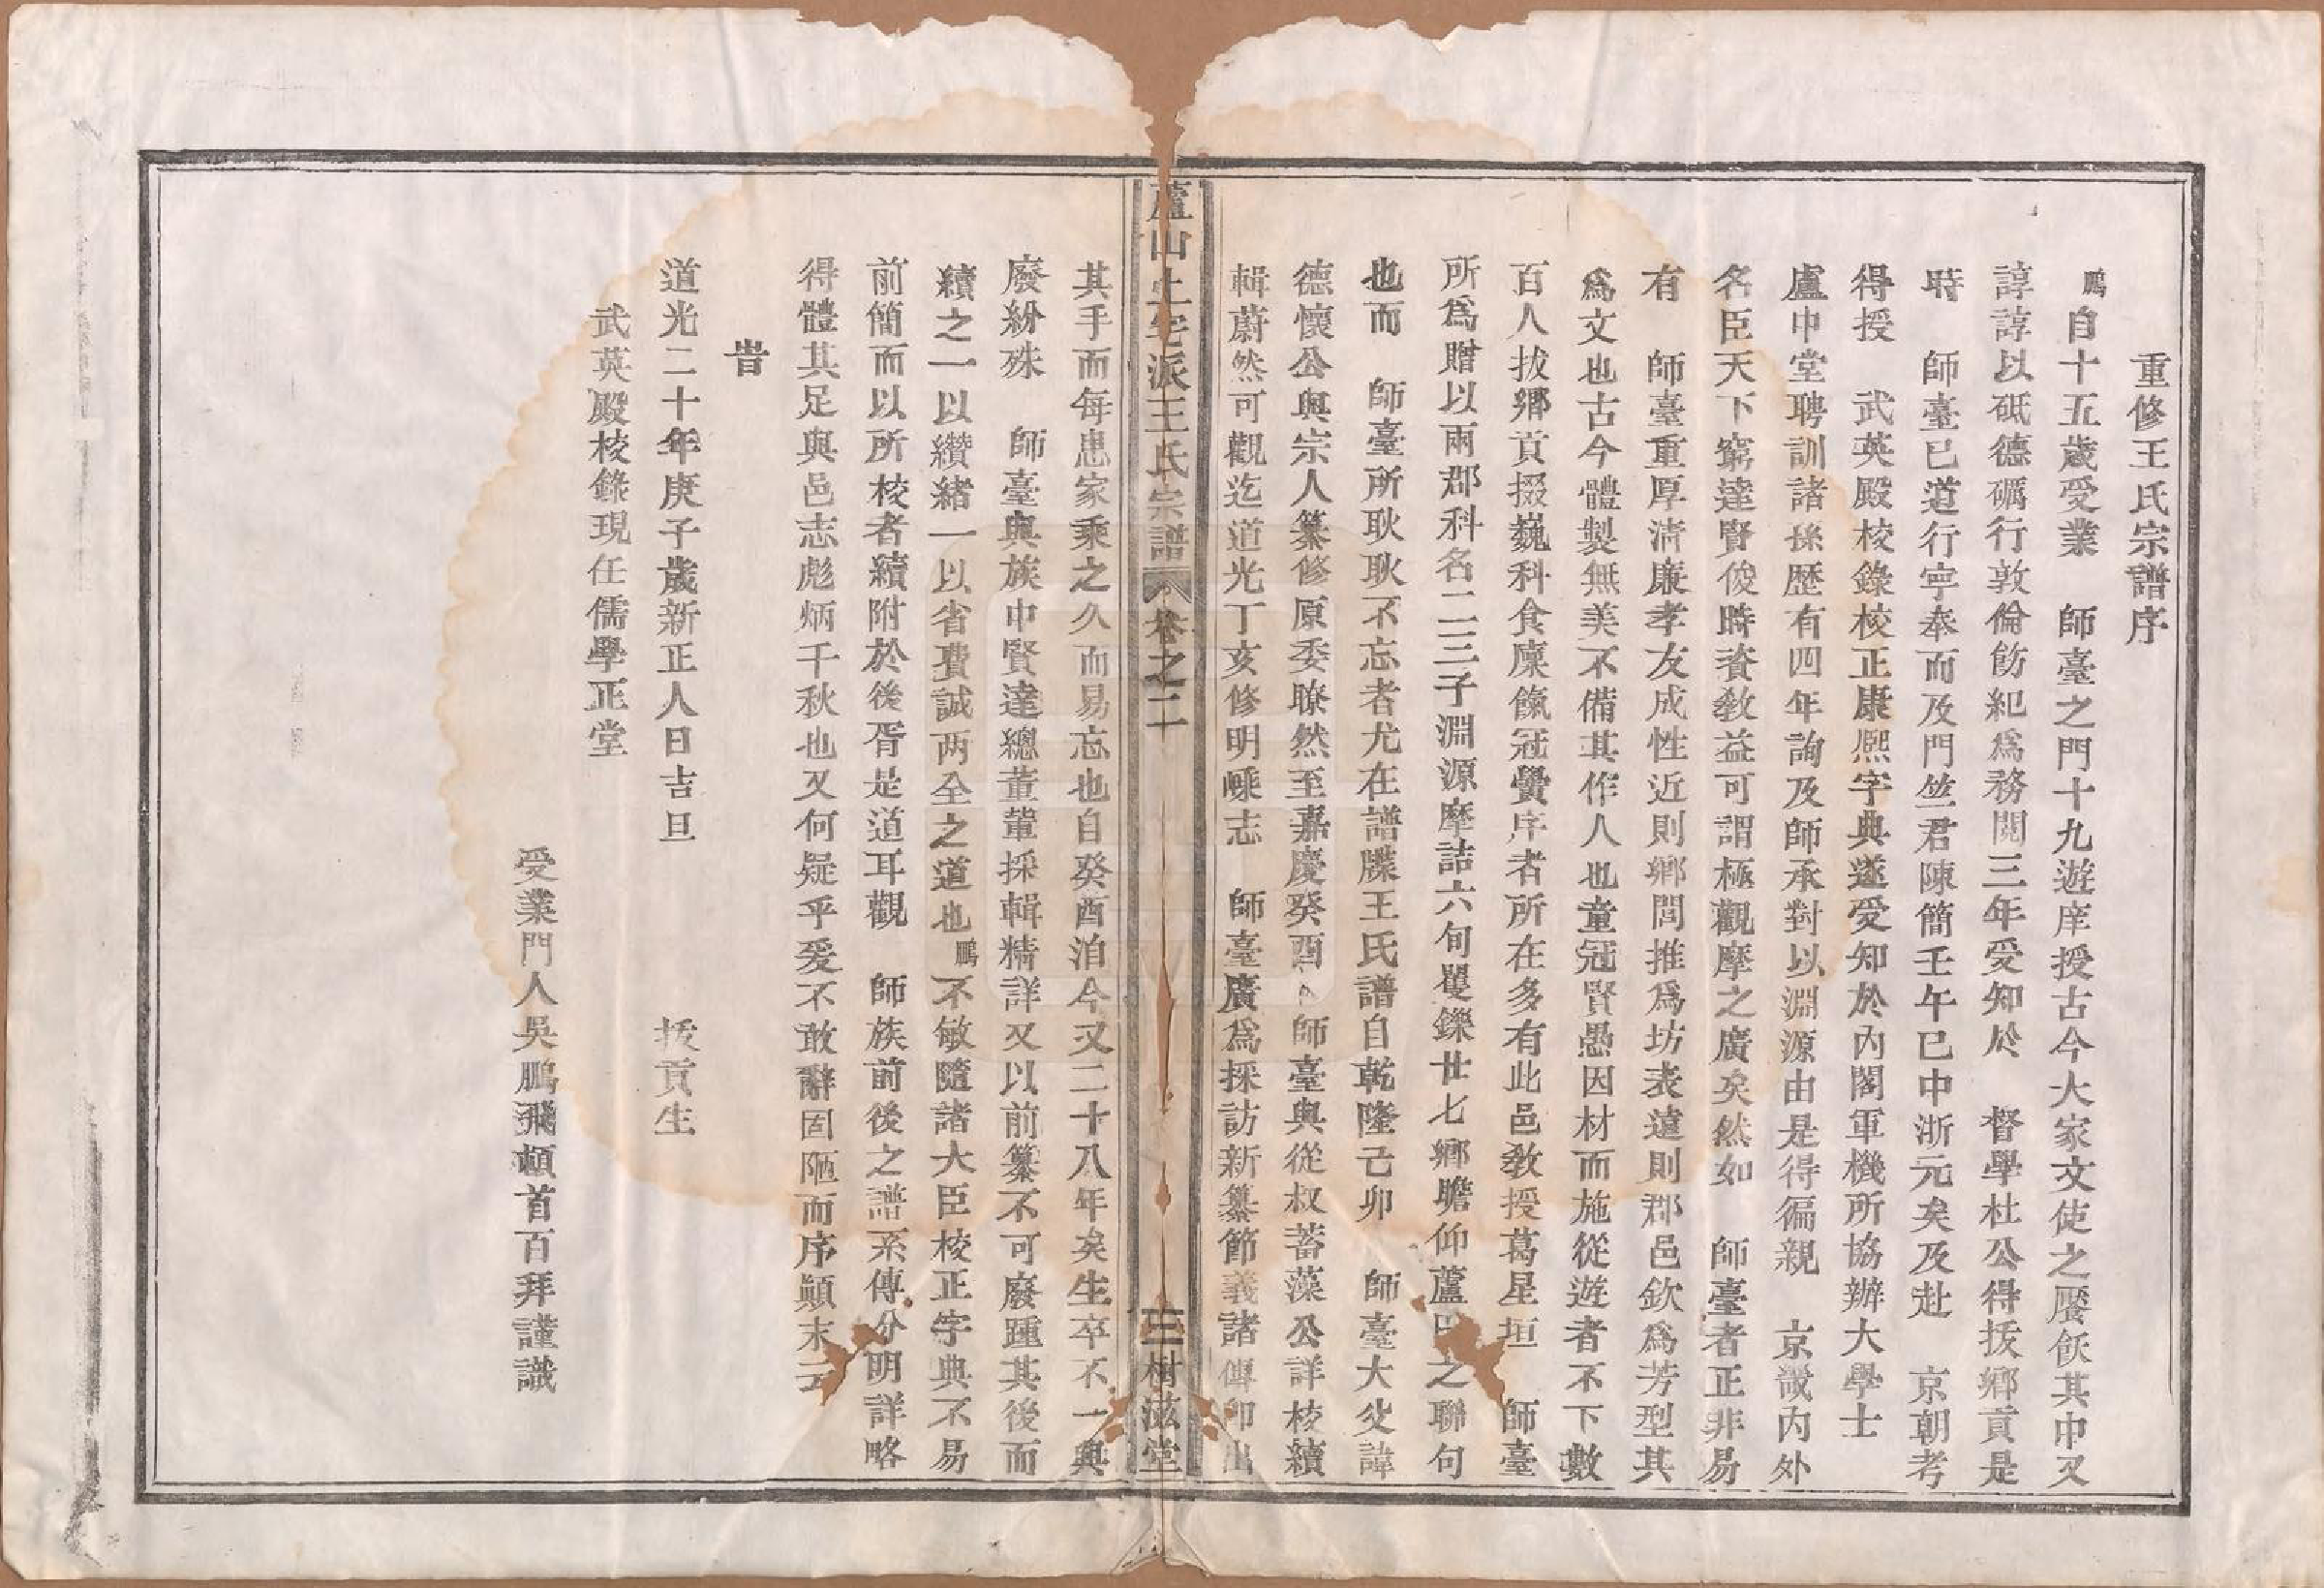 重修王氏宗譜序
鵬自十五歲受業　師臺之門十九遊庠授古今大家文使之饜飫其中又
諄諄以砥德礪行敦倫飭紀爲務閱三年受知於　督學杜公得拔鄉貢是
時　師臺已道行寧奉而及門竺君陳簡壬午已中浙元矣及赴　京朝考
得授　武英殿校錄校正康熙字典遂受知於內閣軍機所協辦大學士
盧中堂聘訓諸孫歷有四年詢及師承對以淵源由是得徧親　京畿內外
名臣天下窮達賢俊時資敎益可謂極觀摩之廣矣然如　師臺者正非易
有　師臺重厚淸廉孝友成性近則鄉閭推爲坊表遠則郡邑欽爲芳型其
爲文也古今體製無美不備其作人也童冠賢愚因材而施從遊者不下數
百人拔鄉貢掇巍科食廩餼冠黌序者所在多有此邑敎授葛星垣　師臺
所爲贈以兩郡科名二三子淵源摩詰六旬矍鑠廿七鄉瞻仰蘆之聯句
也而　師臺所耿耿不忘者尤在譜牒王氏譜自乾隆己卯　師臺大父諱
德懷公與宗人纂修原委瞭然至嘉慶癸酉　師臺與從叔蓄藻公詳校續
輯蔚然可觀迄道光丁亥修明嵊志　師臺廣爲採訪新纂節義諸傳卽出
蘆山上宅派王氏宗譜　卷之二　三　樹滋堂
其手而每患家乘之久而易忘也自癸酉洎今又二十八年矣生卒不一與
廢紛殊　師臺與族中賢達總董董採輯精詳又以前纂不可廢踵其後而
續之一以纘緖一以省費誠两全之道也鵬不敏隨諸大臣校正字典不易
前簡而以所校者續附於後胥是道耳觀　師族前後之譜系傳分明詳略
得體其足與邑志彪炳千秋也又何疑乎爰不敢辭固陋而序顚末云
旹
道光二十年庚子歲新正人日吉旦　　　拔貢生
武英殿校錄現任儒學正堂
受業門人吳鵬飛頓首百拜謹識